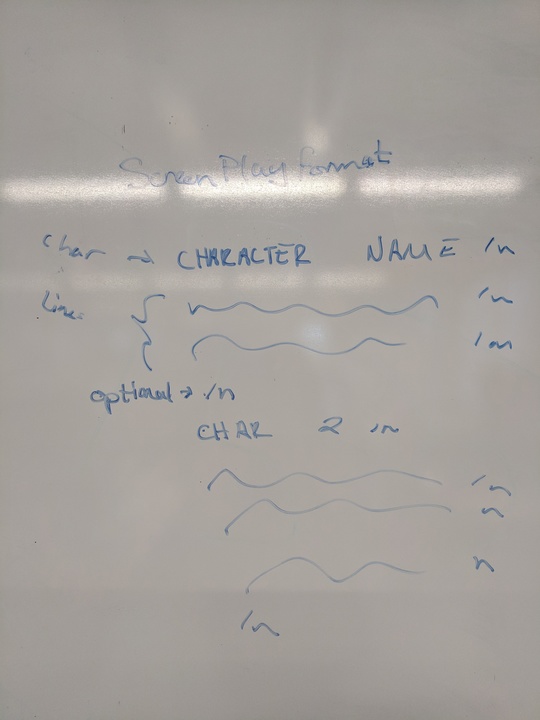 Screen Play format
char → CHARACTER NAME /n
lines /n
/n
optional → /n
CHAR 2 /n
/n
n
n
/n